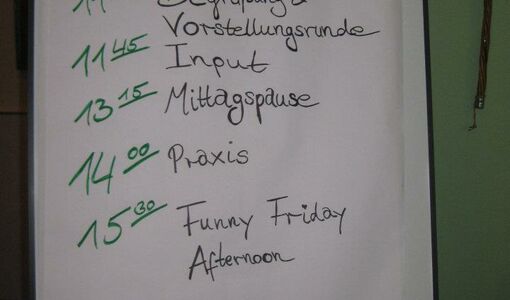 Begrüßung &
Vorstellungsrunde
11 45 Input
13 15 Mittagspause
14 00 Praxis
15 30 Funny Friday
Afternoon